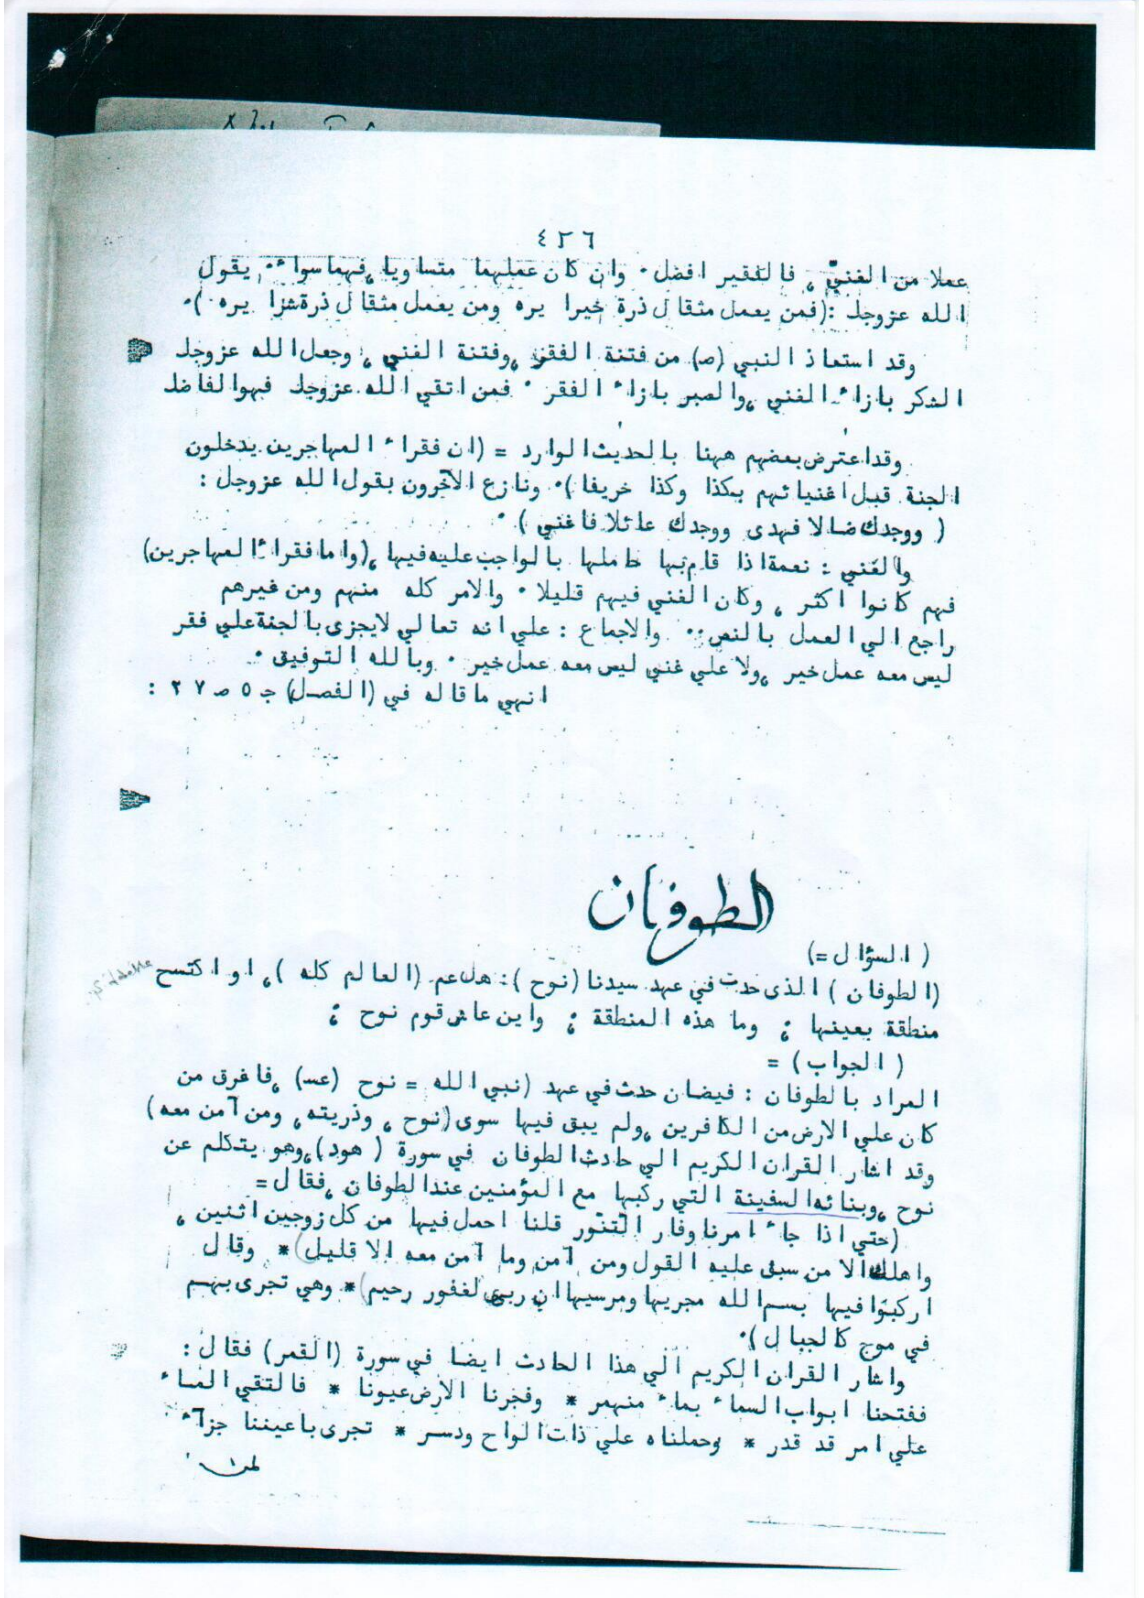 ٤٢٦
عملا من الغنيّ ، فالفقير افضل · وان كان عملهما متساويا ،فهما سواء ·· يقول
الله عزوجل :(فمن يعمل مثقال ذرة خيرا يره ومن يعمل مثقال ذرة شرّا يره · )·
وقد استعاذ النبي (ص) من فتنة الفقر ،وفتنة الغني ، وجعل الله عزوجل
الشكر بازاء الغني ،والصبر بازاء الفقر · فمن اتقي الله عزوجل فهوالفاضل
وقداعترض بعضهم ههنا بالحديث الوارد = (ان فقراء المهاجرين يدخلون
الجنة قبل اغنيائهم بكذا وكذا خريفا )· ونازع الآخرون بقول الله عزوجل :
( ووجدك ضالا فهدى ووجدك عائلا فاغني ) ·
والغني : نعمة اذا قام بها حاملها بالواجب عليه فيها ،(واما فقراء المهاجرين)
فهم كانوا اكثر ، وكان الغني فيهم قليلا · والامر كله منهم ومن غيرهم
راجع الي العمل بالنص ·· والاجماع : علي انه تعالي لايجزى بالجنة علي فقر
ليس معه عمل خير ،ولا علي غني ليس معه عمل خير · وبالله التوفيق ·
انهي ماقاله في (الفصل) جـ ٥ صـ ٢٧ :
الطوفان
( السؤال =)
(الطوفان ) الذى حدث في عهد سيدنا (نوح ): هل عم (العالم كله )، او اكتسح
منطقة بعينها ؛ وما هذه المنطقة ؛ واين عاش قوم نوح ؛
( الجواب ) =
المراد بالطوفان : فيضان حدث في عهد (نبي الله = نوح (عس) ،فاغرق من
كان علي الارض من الكافرين ،ولم يبق فيها سوى (نوح ، وذريته، ومن آمن معه )
وقد اشار القران الكريم الي حادث الطوفان في سورة ( هود)،وهو يتكلم عن
نوح ،وبنائه السفينة التي ركبها مع المؤمنين عند الطوفان ،فقال =
(حتي اذا جاء امرنا وفار التنّور قلنا احمل فيها من كل زوجين اثنين ،
واهلك الا من سبق عليه القول ومن آمن وما آمن معه الا قليل) * وقال
اركبوا فيها بسم الله مجريها ومرسيها ان ربي لغفور رحيم) * وهي تجرى بهم
في موج كالجبال )·
واشار القران الكريم الي هذا الحادث ايضا في سورة (القمر) فقال :
ففتحنا ابواب السماء بماء منهمر * وفجرنا الارض عيونا * فالتقي الماء
علي امر قد قدر * وحملناه علي ذات الواح ودسر * تجرى باعيننا جزآء
لمن